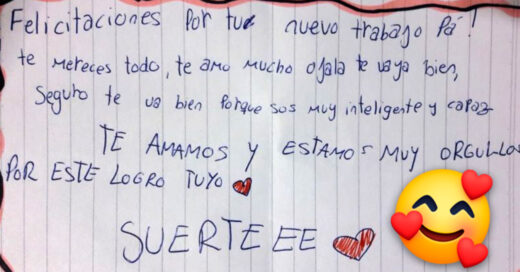 Felicitaciones por tu nuevo trabajo Pá!
te mereces todo, te amo mucho ojala te vaya bien,
seguro te va bien porque sos muy inteligente y capaz
TE AMAMOS Y ESTAMOS MUY ORGULLOS
POR ESTE LOGRO TUYO
SUERTEEE